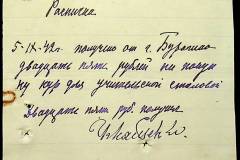 Расписка
5-IX-42г. получено от г. Бурашко
двадцать пять рублей на покуп
ку кур для учительской столовой
Двадцать пять руб. получил